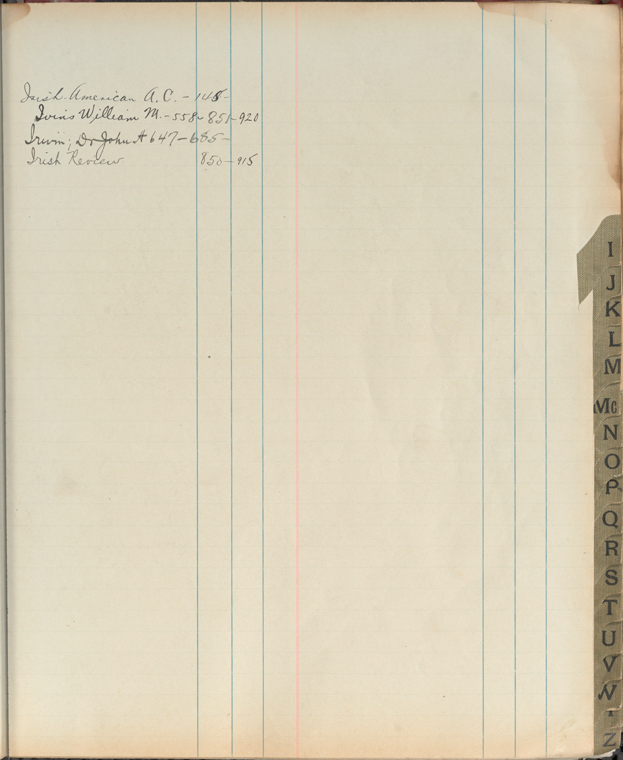 Irish-American A.C. - 145-
Ivins William M. - 558- 851-920
Irwin, Dr John A 647-685-
Irish Review 850-915
I
J
K
L
M
Mc
N
O
P
Q
R
S
T
U
V
W
Y
Z